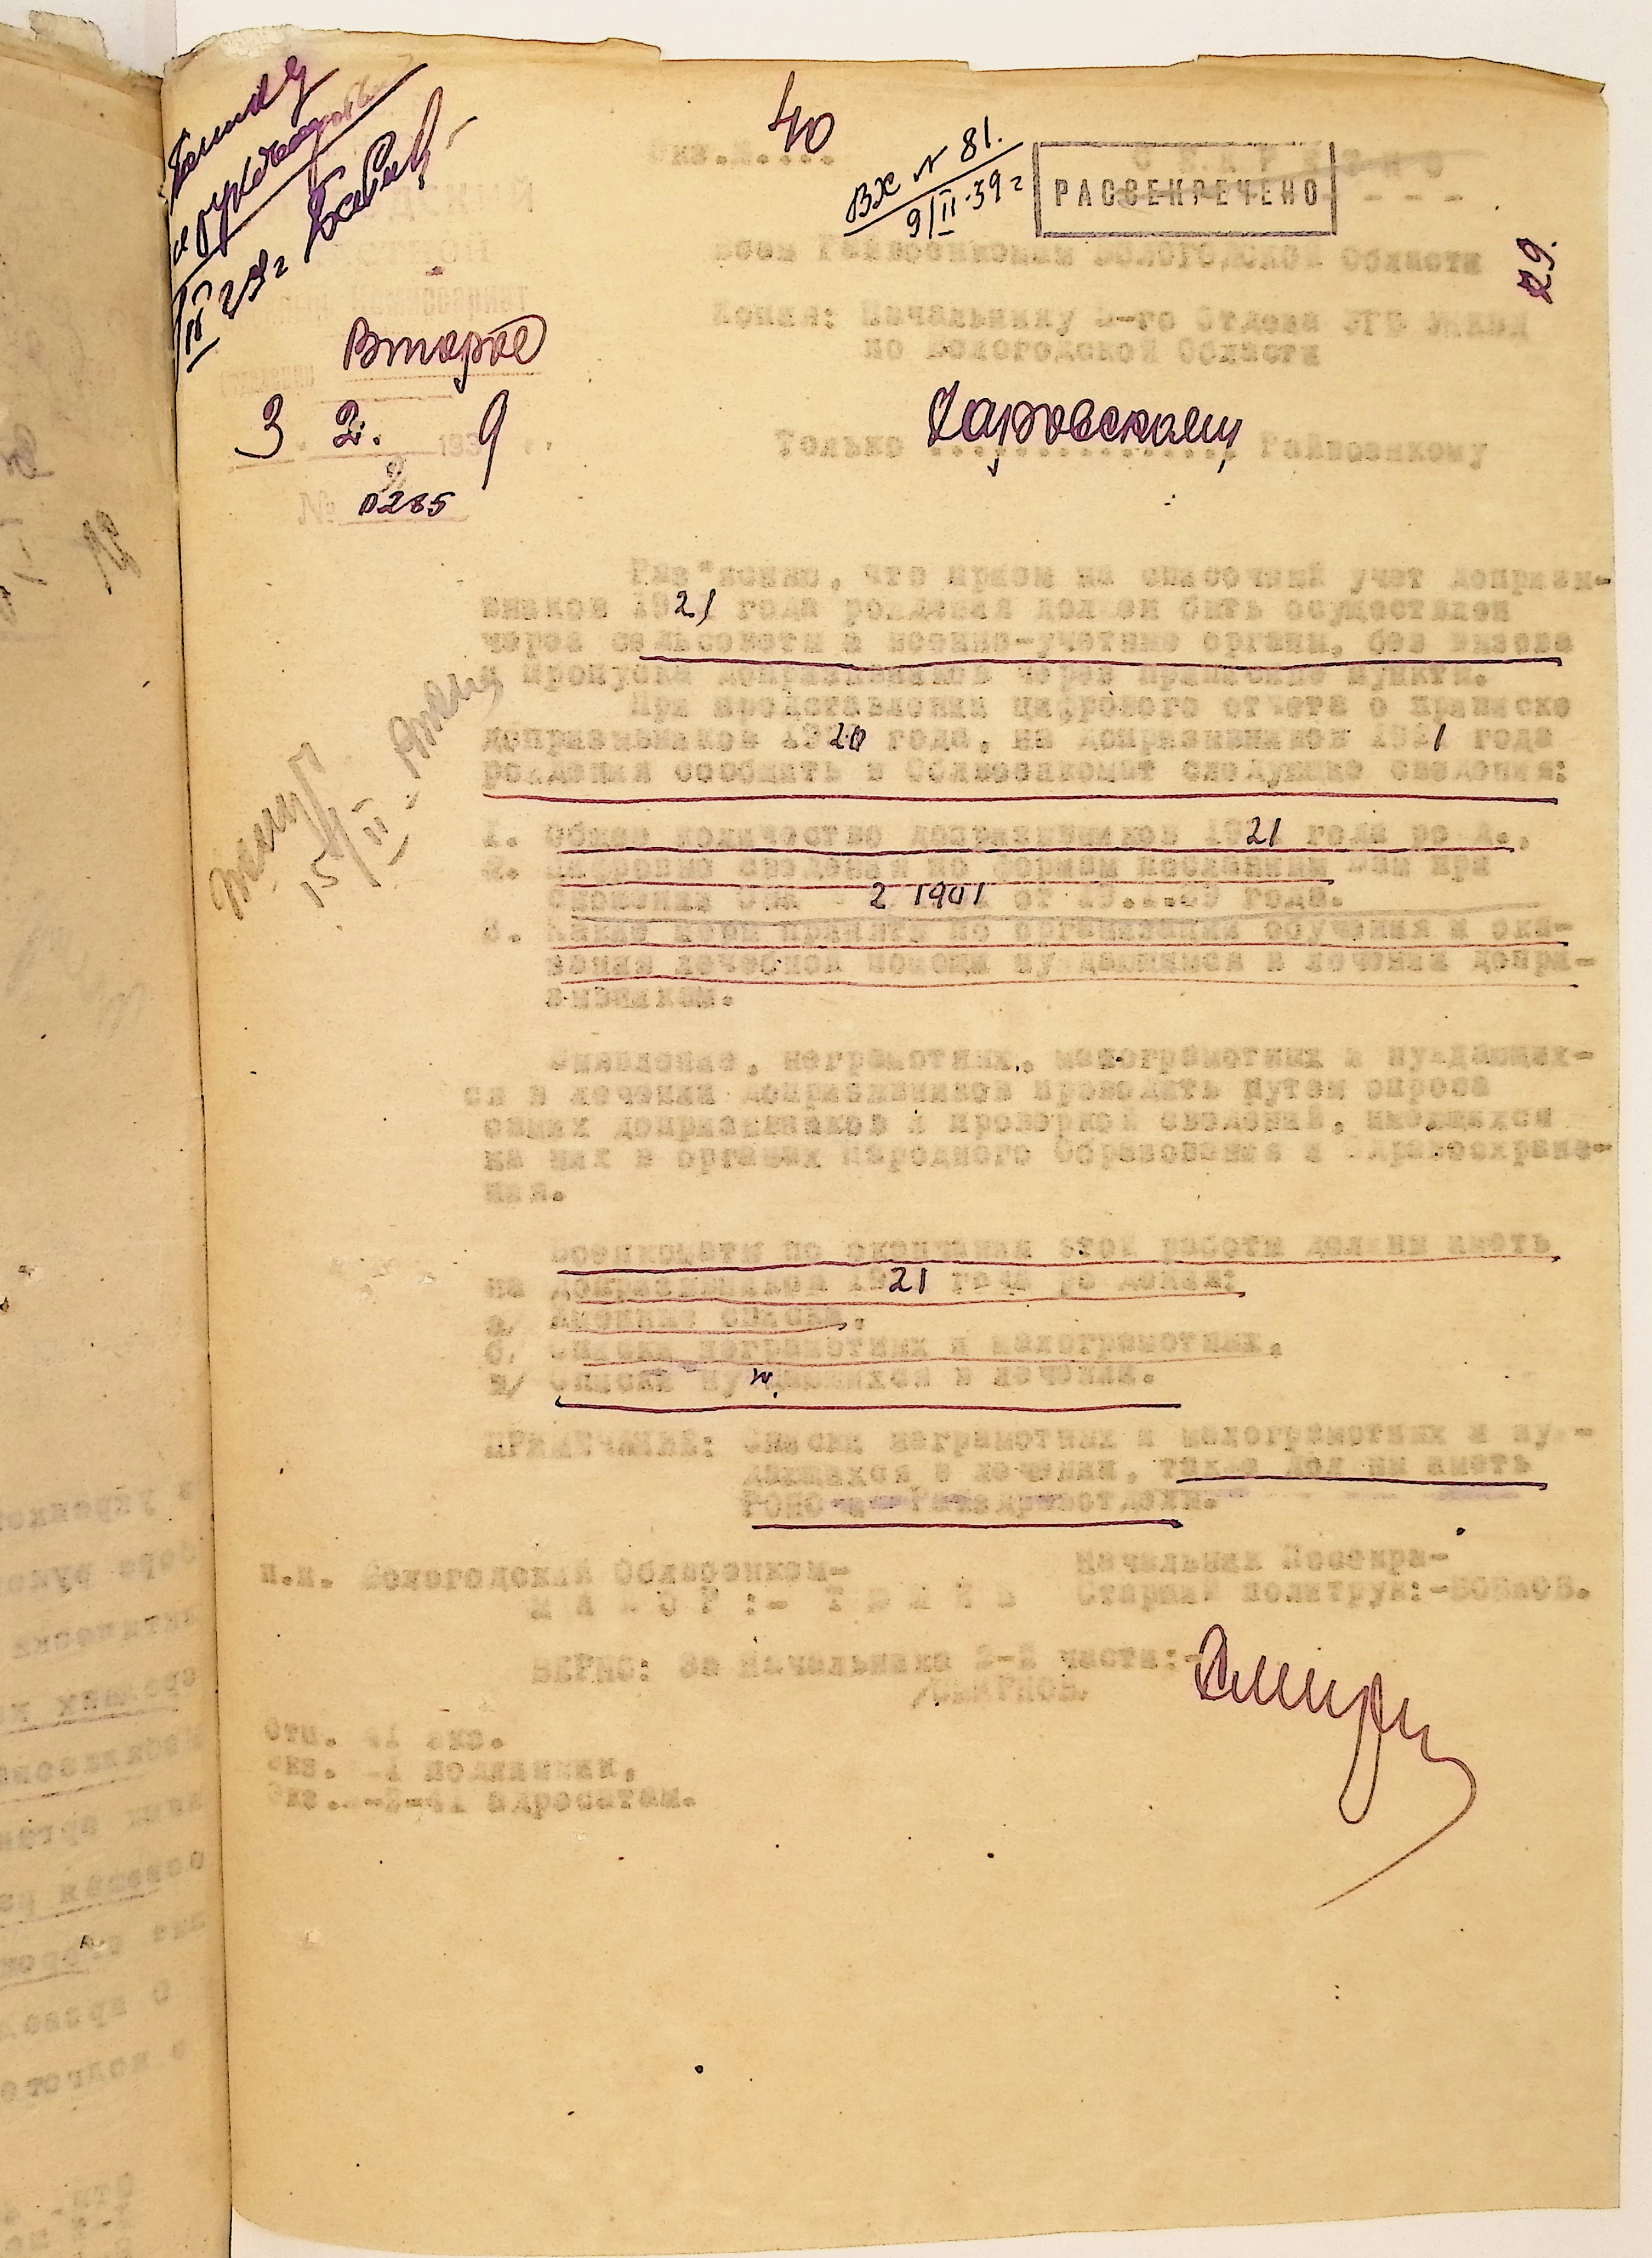 40
Экз.№....
Вх № 81.
9/II-39г
СЕКРЕТНО
РАССЕКРЕЧЕНО
29.
Всем Райвоенкомам Вологодской Области
Копия: Начальнику 3-го Отдела УГБ УНКВД
по Вологодской Области
Второе
3 2. 1939
№ 0265
Только Харовскому Райвоенкому
Раз"ясняю, что прием на списочный учет допризы-
вников 1921 года рождения должен быть осуществлен
через сельсоветы и военно-учетные органы, без вызова
и пропуска допризывников через приписные пункты.
При представлении цифрового отчета о приписке
допризывников 1920 года, на допризывников 1921 года
рождения сообщить в Облвоенкомат следующие сведения:
1. Общее количество допризывников 1921 года рожд.,
2. Цифровые сведения по формам посланным Вам при
от 19.1.39 года.
3. Какие меры приняты по организации обучения и ока-
зания лечебной помощи нуждающимся в лечении допри-
зывникам.
Выявление, неграмотных, малограмотных и нуждающих-
ся в лечении допризывников проводить путем опроса
самих допризывников и проверкой сведений, имеющихся
на них в органах Народного Образования и Здравоохране-
ния.
Военкоматы по окончании этой работы должны иметь
на допризывников 1921 года рождения:
а/ Именные списки,
б/ Списки неграмотных и малограмотных,
в/ Списки нуждающихся в лечении.
ПРИМЕЧАНИЕ: Списки неграмотных и малограмотных и нуж-
дающихся в лечении, также должны иметь
РОНО и Райздравотделы.
п.п. Вологодский Облвоенком-
МАЙОР:-
Начальник
Старший политрук:-
ВЕРНО: За Начальника 2-й части:-
/СМИРНОВ.
Отп. 41 экз.
экз. -1 подлинник,
экз. -2-41 адресатам.